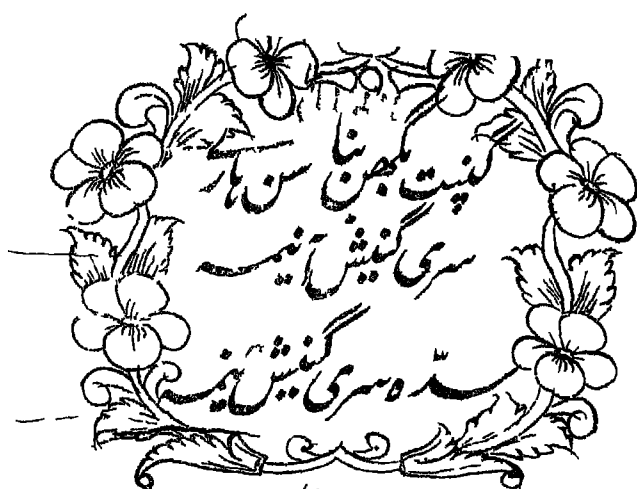 گنپت بگھن بنا سن ہار
سری گنیش آنیمہ
سدّہ سری گنیش آنیمہ